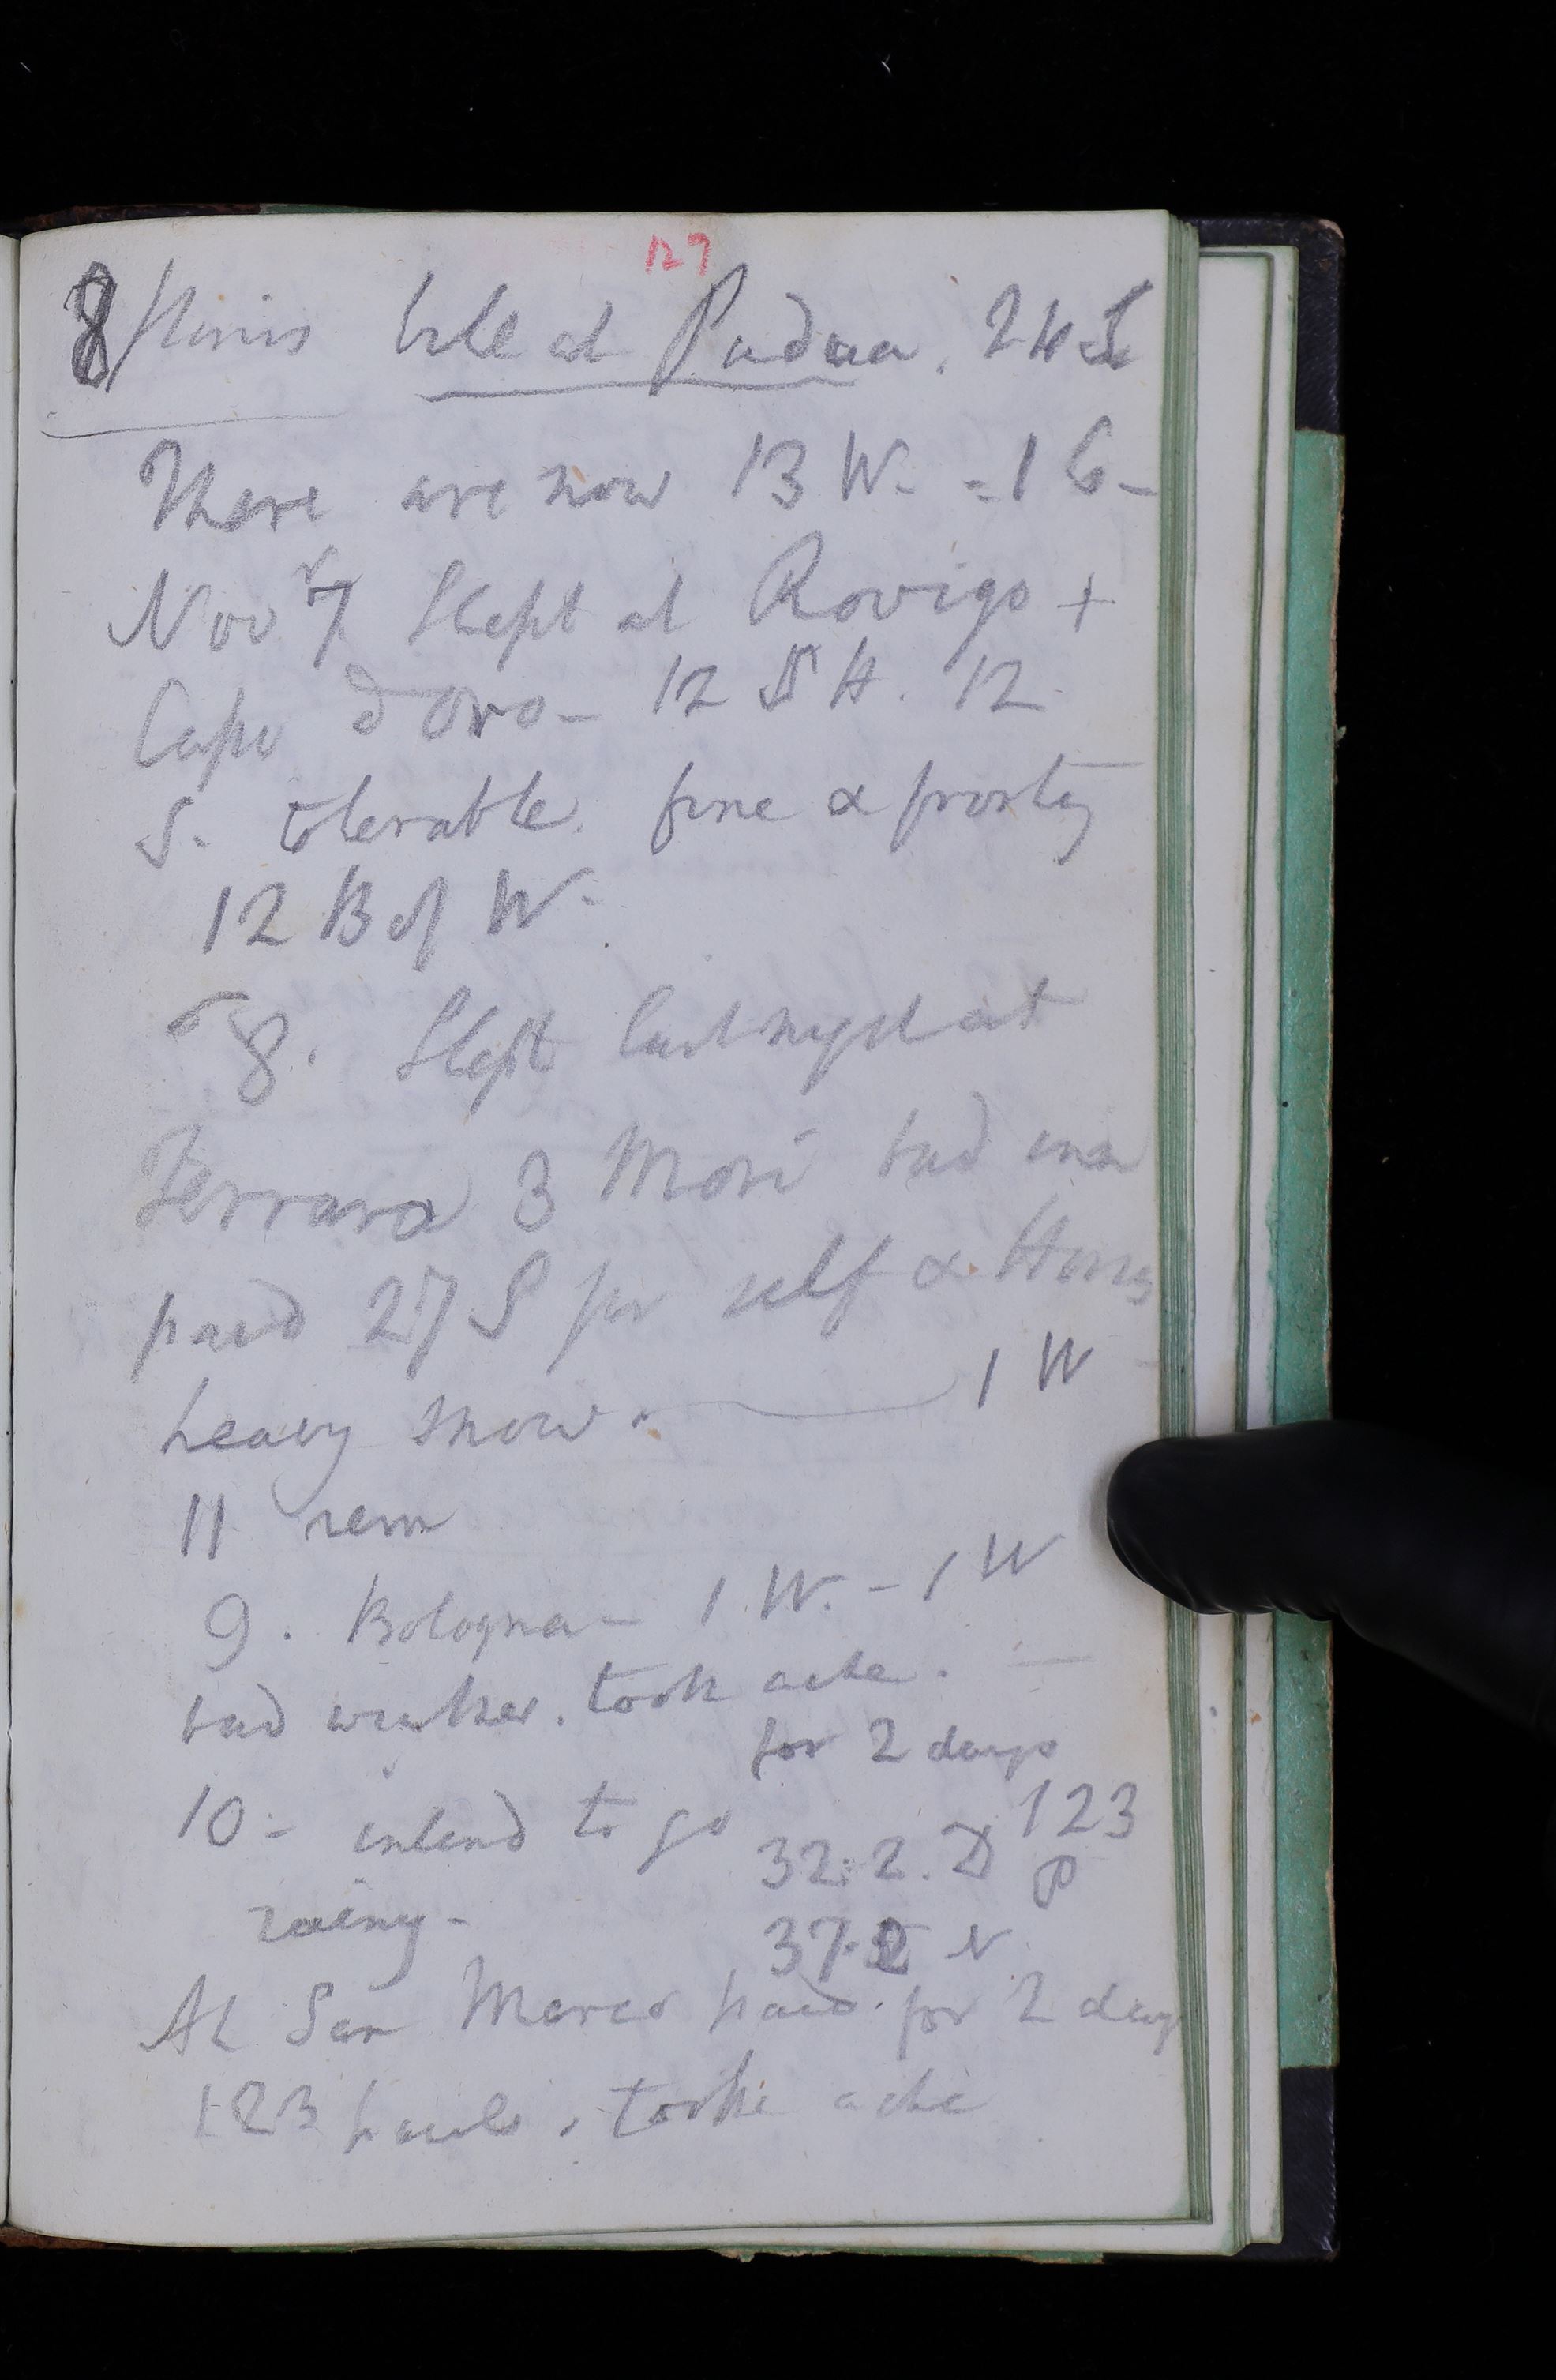 127
8 florins bill at Padua. 24 S
There are now 13 W. = 1 G-
Nov 7. Slept at Rovigo +
Capo d'Oro - 12 S H. 12
S. tolerable. fine & frosty
12 B of W.
8. Slept last nyght at
Ferrara 3 Mori bad inn
paid 27 S for self & Horses
heavy snow. 1 W -
11 rem
9. Bologna - 1 W. - 1 W
bad weather. tooth ache.
for 2 days
10 - intend to go
32. 2. D 123
P
rainy -
37.
At San Marco paid for 2 days
123 pauls. tooth ache